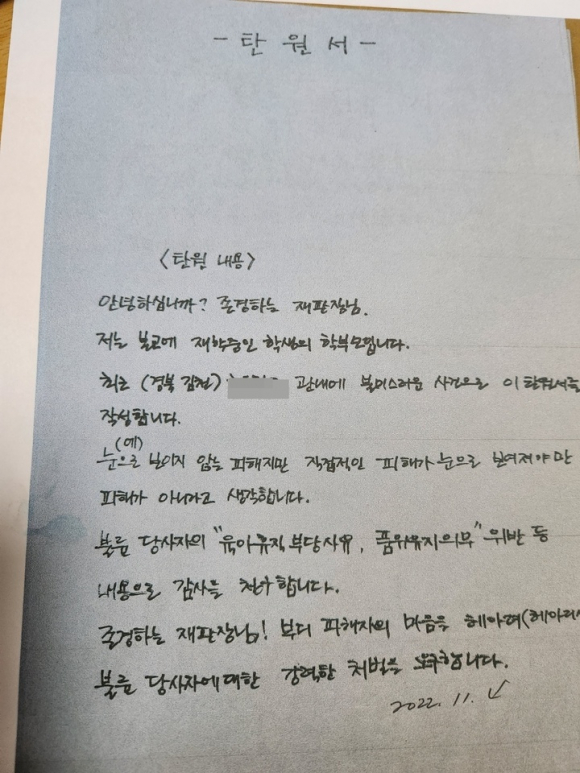 - 탄 원 서 -
<탄원 내용>
안녕하십니까? 존경하는 재판장님.
저는 본교에 재학중인 학생의 학부모입니다.
최초 (경북 김천) 관내에 불미스러운 사건으로 이 탄원서를
작성합니다.
(예)
눈으로 보이지 않는 피해지만 직접적인 피해가 눈으로 보여져야만
피해가 아니라고 생각합니다.
불륜 당사자의 "육아휴직 부당사유, 품위유지의무" 위반 등
내용으로 감사를 청구합니다.
존경하는 재판장님! 부디 피해자의 마음을 헤아려
불륜 당사자에 대한 강력한 처벌을 요구합니다.
2022. 11.